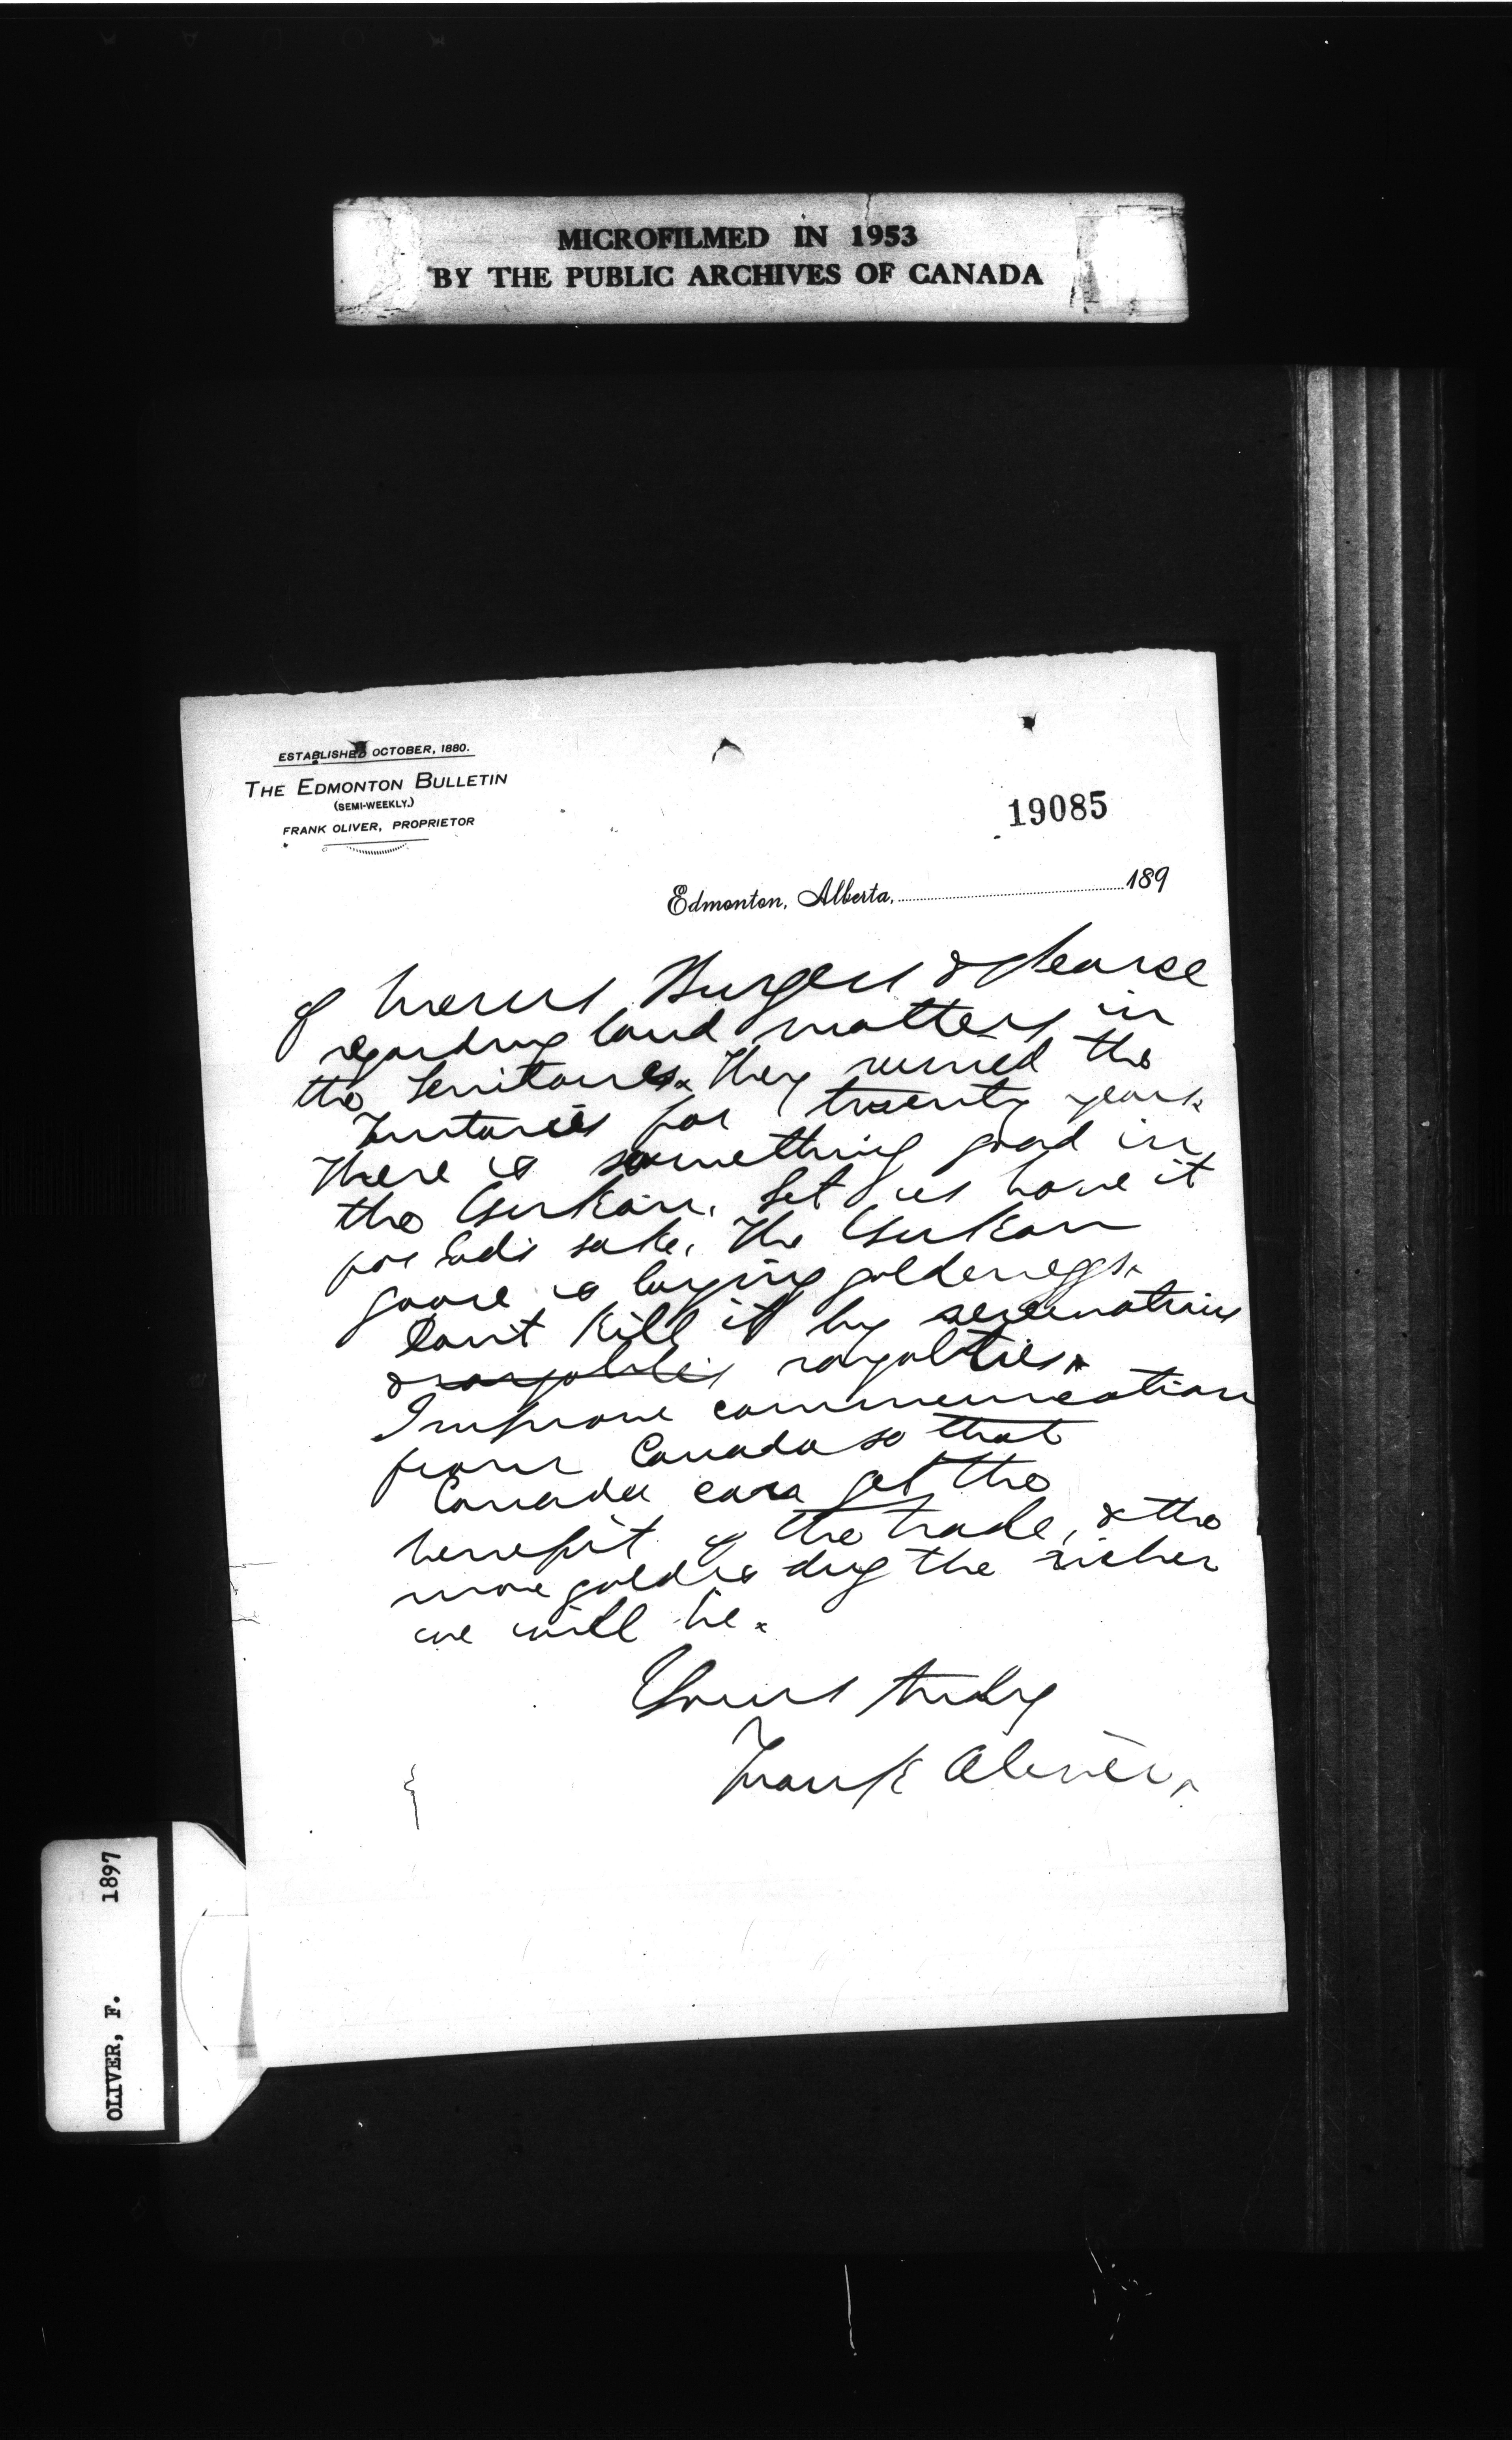 MICROFILMED IN 1953
BY THE PUBLIC ARCHIVES OF CANADA
ESTABLISHED OCTOBER, 1880.
THE EDMONTON BULLETIN
(SEMI-WEEKLY.)
FRANK OLIVER, PROPRIETOR
19085
Edmonton, Alberta, 189
of Messrs Burgess & Pearce
regarding land matters in
the Territories. They ruined the
Territories for twenty years.
There is something good in
the Yukon. Let us have it
for God's sake. The Yukon
goose is laying golden eggs.
Don't kill it by reservations
& royalties royalties.
Improve communication
from Canada so that
Canada can get the
benefit of the trade, & the
more gold is dug the richer
we will be.
Yours truly
Frank Oliver.
OLIVER, F. 1897